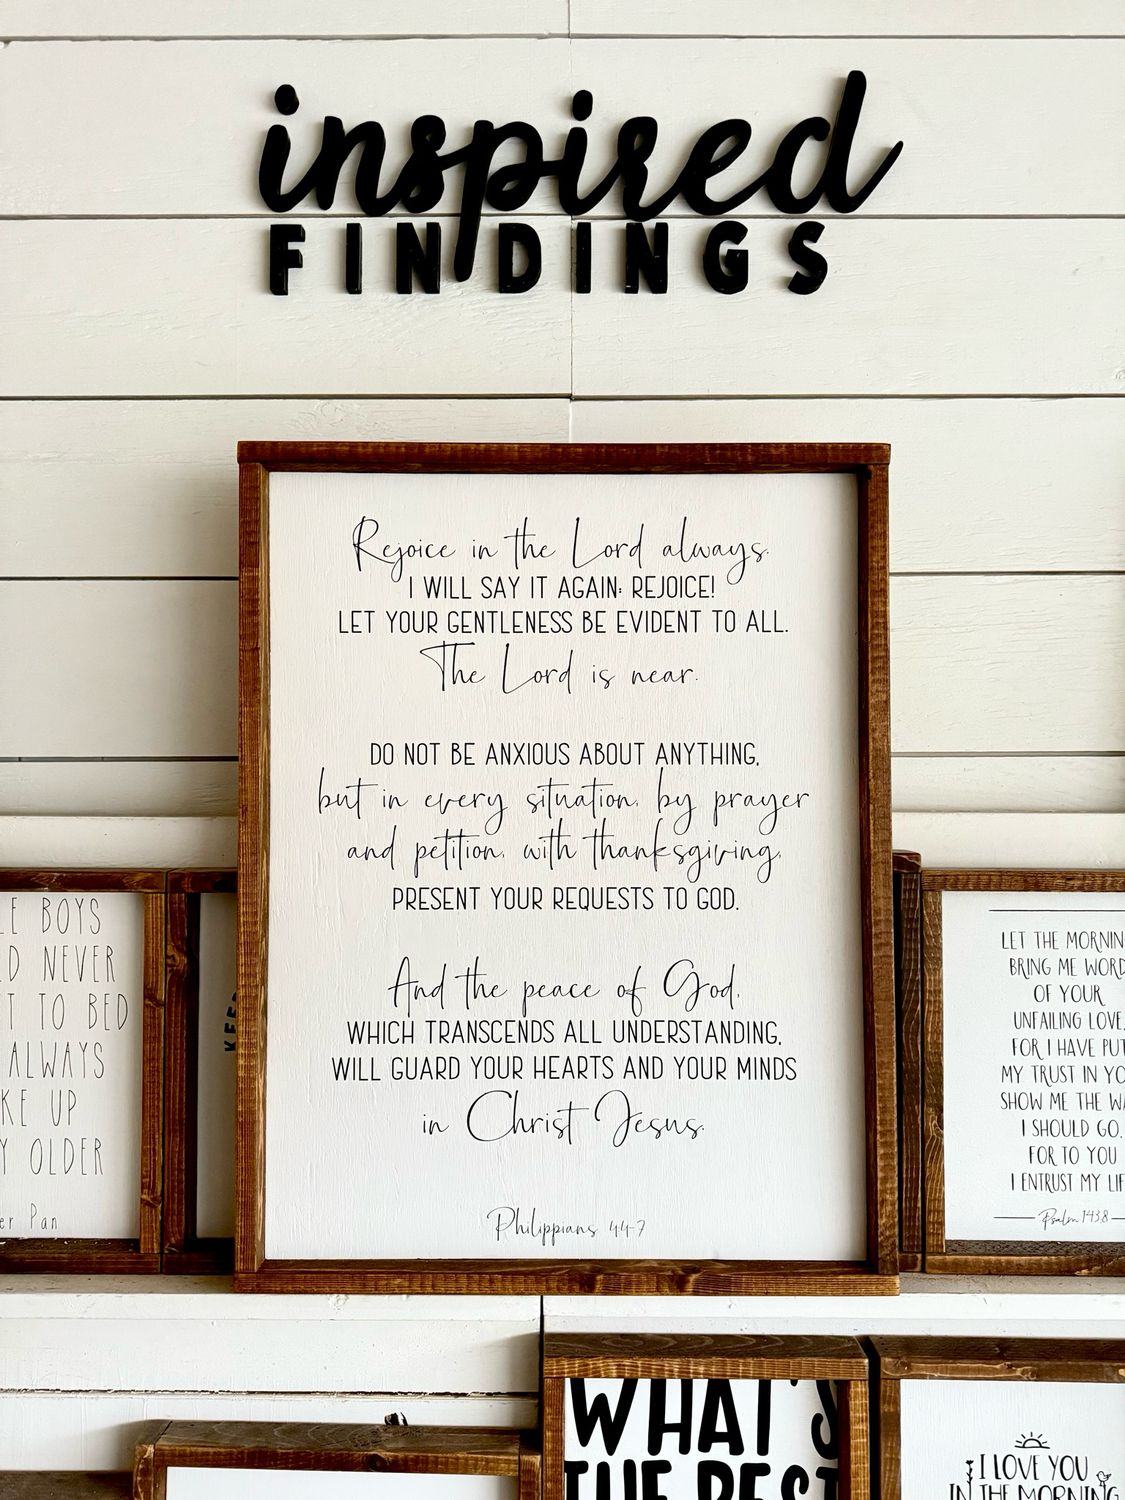 inspired
FINDINGS
Rejoice in the Lord always.
I WILL SAY IT AGAIN: REJOICE!
LET YOUR GENTLENESS BE EVIDENT TO ALL.
The Lord is near.
DO NOT BE ANXIOUS ABOUT ANYTHING,
but in every situation, by prayer
and petition, with thanksgiving,
PRESENT YOUR REQUESTS TO GOD.
And the peace of God,
WHICH TRANSCENDS ALL UNDERSTANDING,
WILL GUARD YOUR HEARTS AND YOUR MINDS
in Christ Jesus.
Philippians 4:4-7
LE BOYS
LD NEVER
T TO BED
ALWAYS
KE UP
Y OLDER
er Pan
KEE
LET THE MORNIN
BRING ME WORD
OF YOUR
UNFAILING LOVE,
FOR I HAVE PUT
MY TRUST IN YO
SHOW ME THE WA
I SHOULD GO,
FOR TO YOU
I ENTRUST MY LIF
Psalm 143:8
WHAT'S
THE BEST
I LOVE YOU
IN THE MORNING